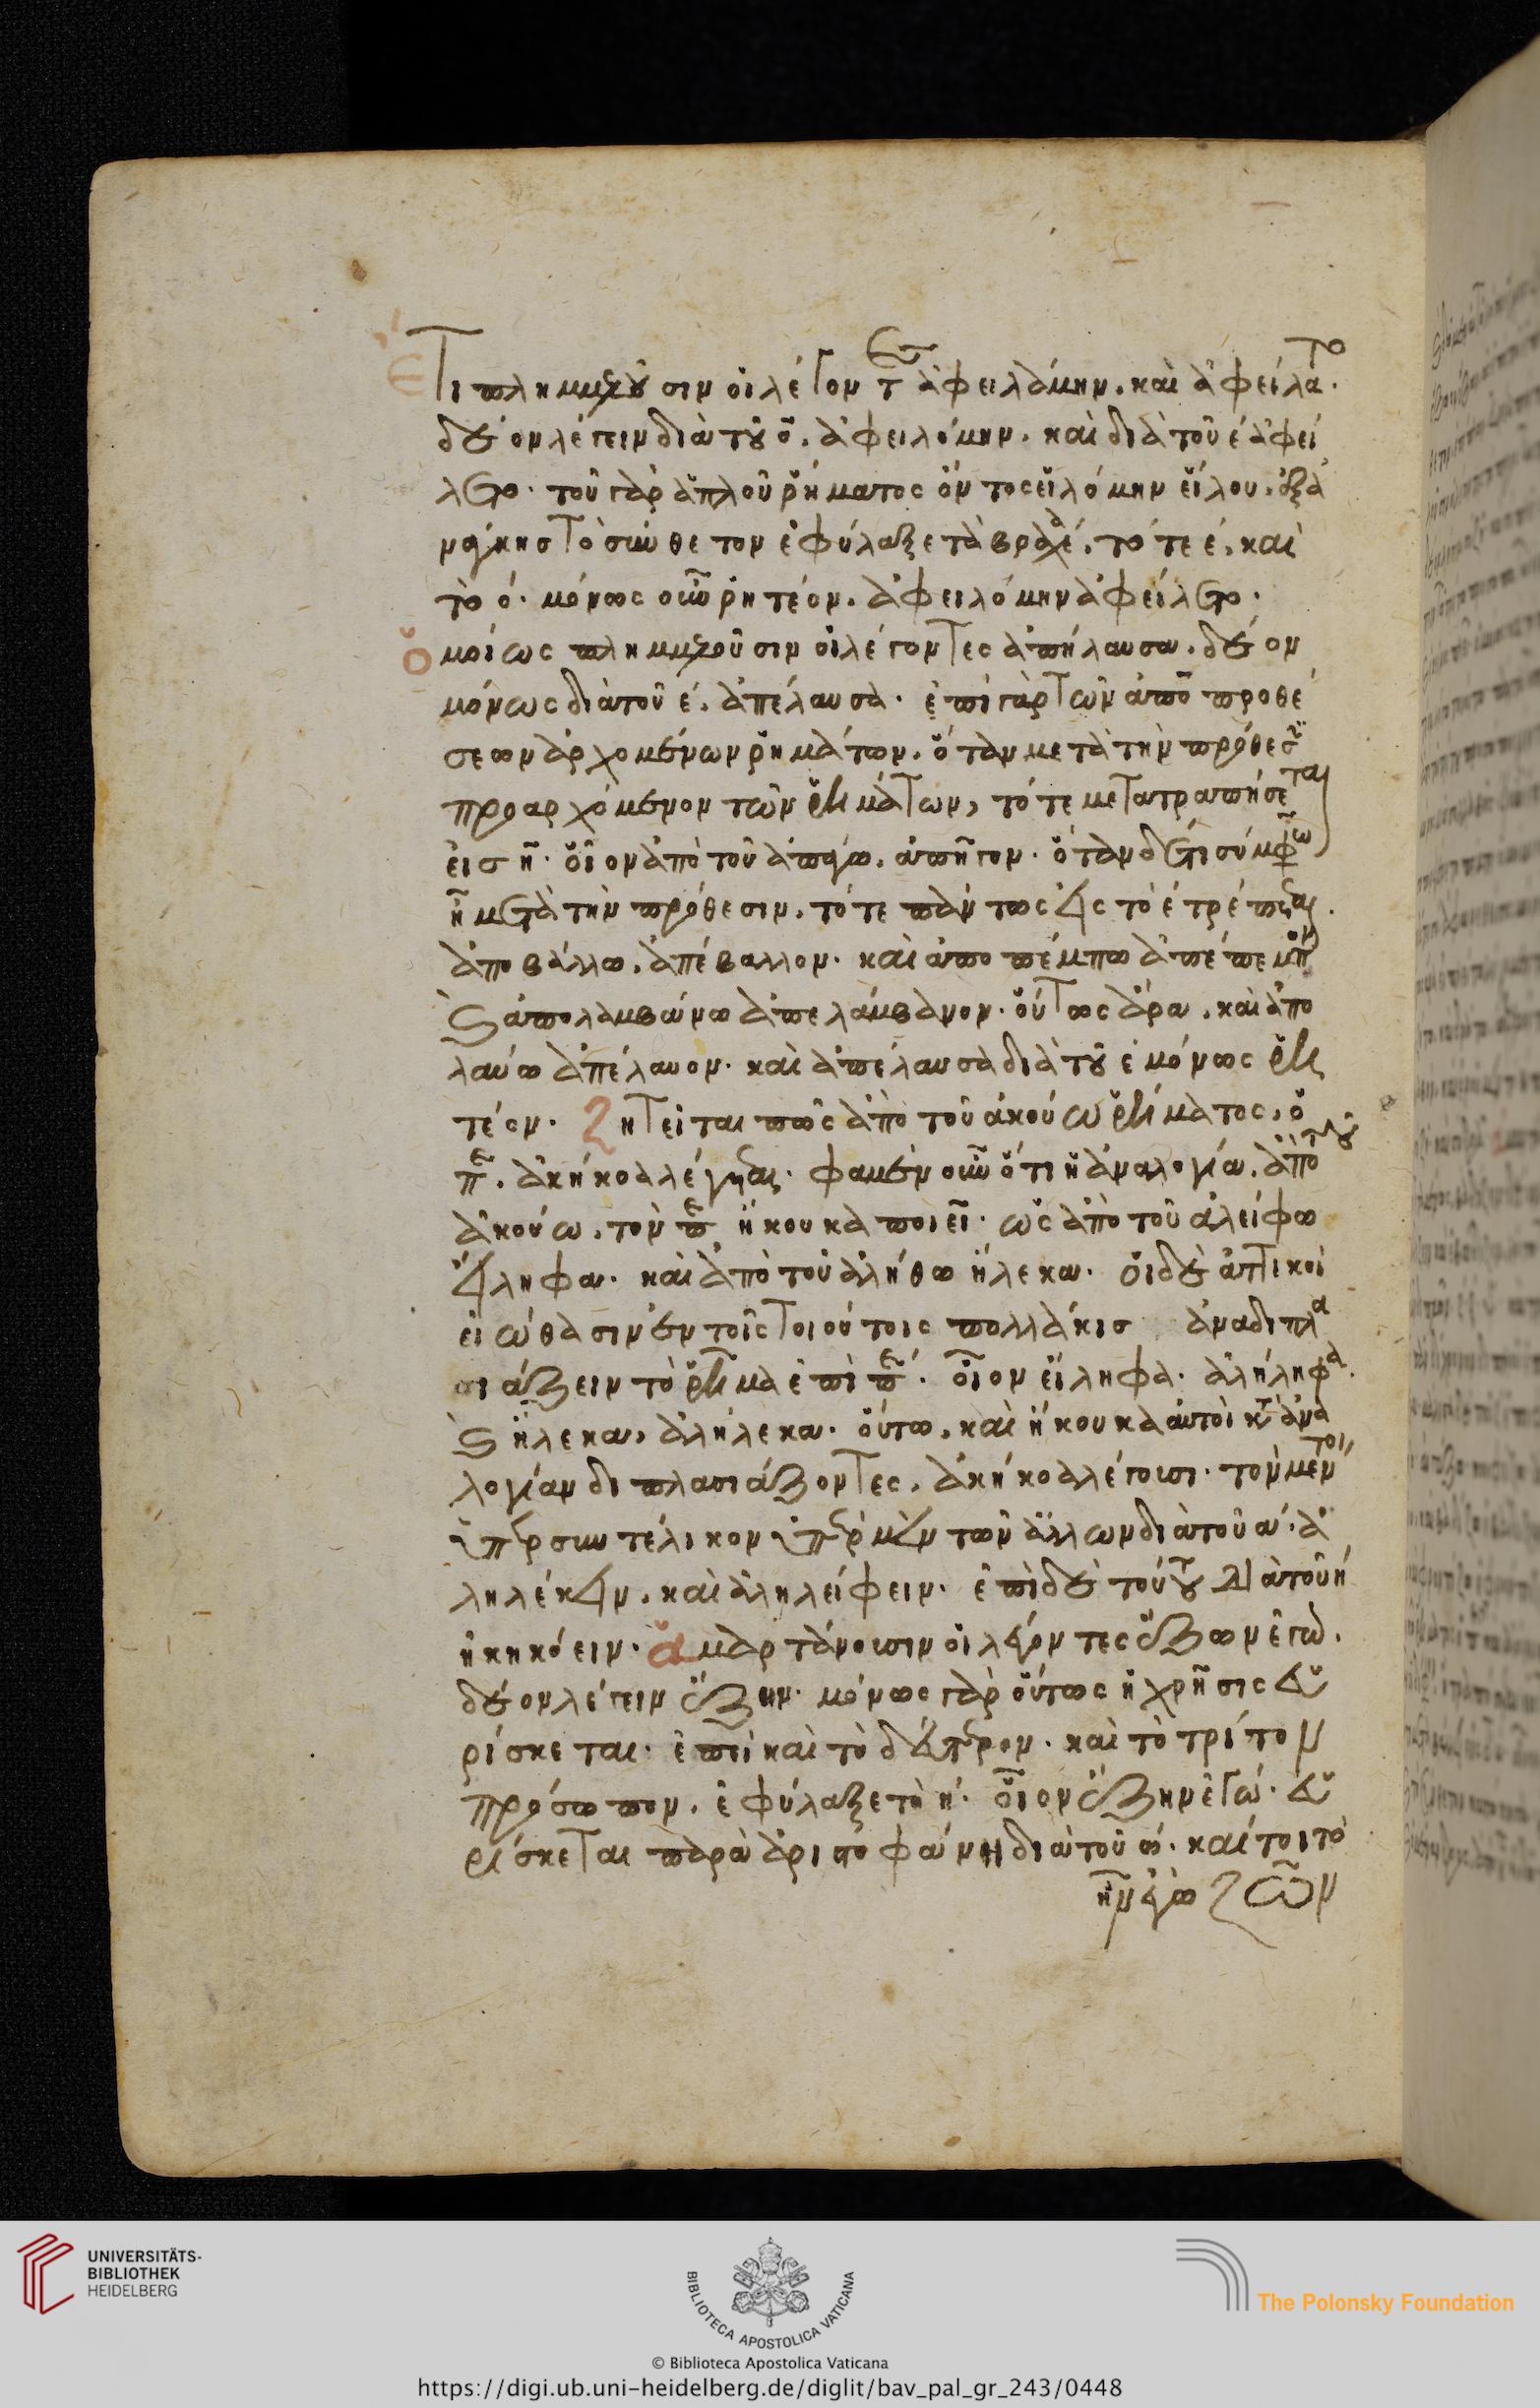 Ἔτι πλημμελοῦσιν οἱ λέγοντες ἀφειλάμην. καὶ ἀφείλατο.
δέον λέγειν διὰ τοῦ ο. ἀφειλόμην. καὶ διὰ τοῦ ε ἀφεί
λετο. τοῦ γὰρ ἁπλοῦ ῥήματος ὄντος εἱλόμην εἵλου. ἐξ ἀ
νάγκης τὸ σύνθετον ἐφύλαξε τὰ βραχέα. τό τε ε. καὶ
τὸ ο. μόνως οὖν ῥητέον. ἀφειλόμην ἀφείλετο.
Ὁμοίως πλημμελοῦσιν οἱ λέγοντες ἀπήλαυσα. δέον
μόνως διὰ τοῦ ε. ἀπέλαυσα. ἐπὶ γὰρ τῶν ἀπὸ προθέ
σεων ἀρχομένων ῥημάτων. ὅταν μετὰ τὴν πρόθεσιν
προαρχόμενον τῶν ῥημάτων, τότε μετατραπήσεται
εἰς η. οἷον ἀπὸ τοῦ ἀπάγω. ἀπῆγον. ὅταν δέ τι σύμφωνον
ᾖ μετὰ τὴν πρόθεσιν. τότε πάντως εἰς τὸ ε τρέπεται.
ἀποβάλλω. ἀπέβαλλον. καὶ ἀποπέμπω ἀπέπεμπον
καὶ ἀπολαμβάνω ἀπελάμβανον. οὕτως ἄρα. καὶ ἀπο
λαύω ἀπέλαυον. καὶ ἀπέλαυσα διὰ τοῦ ε μόνως ῥη
τέον. Ζητεῖται πῶς ἀπὸ τοῦ ἀκούω ῥήματος, ὁ
π. ἀκήκοα λέγεται. φαμὲν οὖν ὅτι ἡ ἀναλογία. ἀπὸ τοῦ
ἀκούω. τὸν π ἤκουκα ποιεῖ. ὡς ἀπὸ τοῦ ἀλείφω
ἤληφα. καὶ ἀπὸ τοῦ ἀλήθω ἤλεκα. οἱ δὲ ἀττικοὶ
εἰώθασιν ἐν τοῖς τοιούτοις πολλάκις ἀναδιπλα
σιάζειν τὸ ῥῆμα ἐπὶ π. οἷον εἴληφα. ἀλήληφα.
καὶ ἤλεκα, ἀλήλεκα. οὕτω. καὶ ἤκουκα αὐτοὶ κατὰ ἀνα
λογίαν διπλασιάζοντες. ἀκήκοα λέγουσι. τὸν μέντοι
ὑπερσυντέλικον ὑπὲρ μὲν τῶν ἄλλων διὰ τοῦ α. ἀ
ληλέκειν. καὶ ἀληλείφειν. ἐπὶ δὲ τούτου διὰ τοῦ η
ἠκηκόειν. ἁμαρτάνουσιν οἱ λέγοντες ἔζων ἐγώ.
δέον λέγειν ἔζην. μόνως γὰρ οὕτως ἡ χρῆσις εὑ
ρίσκεται. ἐπεὶ καὶ τὸ δεύτερον. καὶ τὸ τρίτον
πρόσωπον. ἐφύλαξε τὸ η. οἷον ἔζην ἐγώ. εὑ
ρίσκεται παρὰ ἀριστοφάνῃ διὰ τοῦ ω. καίτοι τὸ
ἦν ἐγὼ ζῶν
UNIVERSITÄTS-
BIBLIOTHEK
HEIDELBERG
BIBLIOTECA APOSTOLICA VATICANA
The Polonsky Foundation
© Biblioteca Apostolica Vaticana
https://digi.ub.uni-heidelberg.de/diglit/bav_pal_gr_243/0448